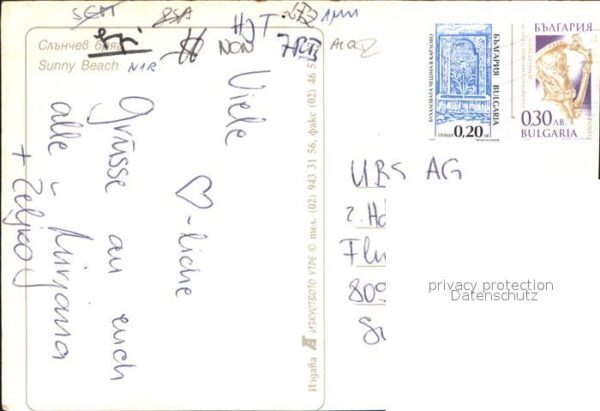 SEM
ZSA
HJT
NON
NIR
Слънчев бряг
Sunny Beach
Viele
♡-liche
Grüsse an euch
alle Mirjana
+ Željko
Издава ИЗКУСТВОТО УТРЕ © тел. (02) 943 31 56, факс (02) 46 5
БЪЛГАРИЯ BULGARIA
0,20 лв
БЪЛГАРИЯ
0.30 ЛВ
BULGARIA
UBS AG
z. Ha
Flu
809
privacy protection
Datenschutz